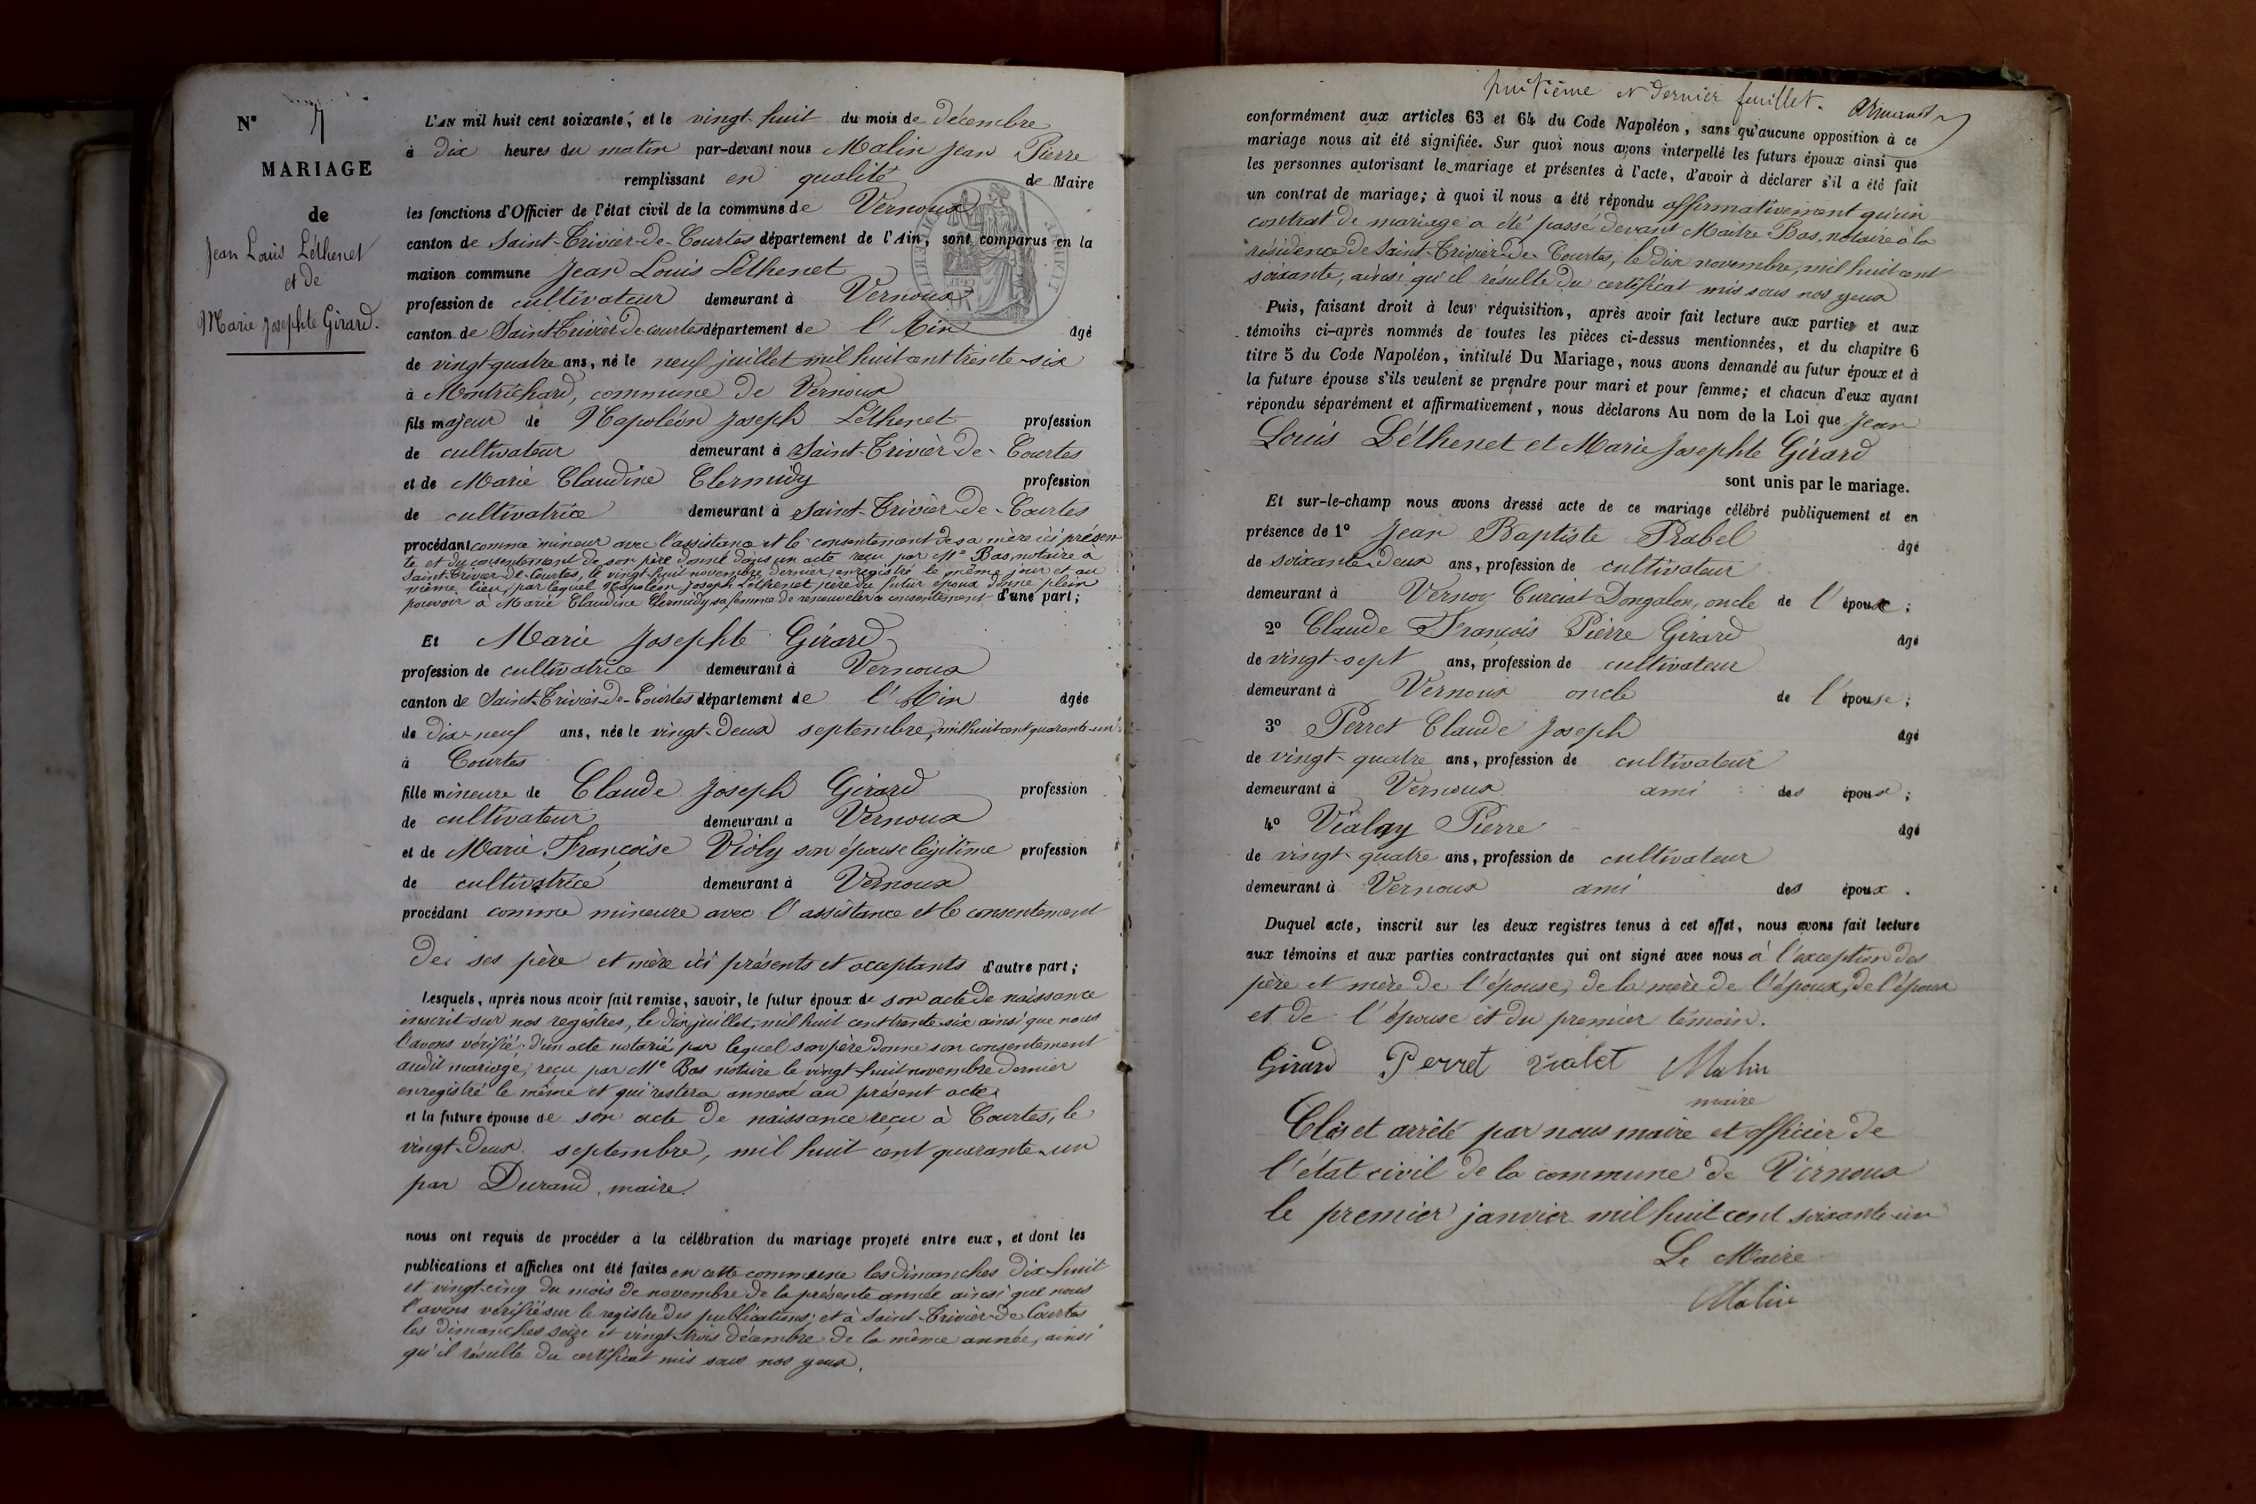 N° 7
MARIAGE
de
Jean Louis Léthenet
et de
Marie Josephte Girard.
L'AN mil huit cent soixante, et le vingt-huit du mois de décembre
à dix heures du matin par-devant nous Malin Jean Pierre
remplissant en qualité de Maire
les fonctions d'Officier de l'état civil de la commune de Vernoux
canton de Saint-Trivier-de-Courtes département de l'Ain, sont comparus en la
maison commune Jean Louis Léthenet
profession de cultivateur demeurant à Vernoux
canton de Saint-Trivier de Courtes département de l'Ain âgé
de vingt-quatre ans, né le neuf juillet mil huit cent trente-six
à Montrichard, commune de Vernoux
fils majeur de Napoléon Joseph Léthenet profession
de cultivateur demeurant à Saint-Trivier-de-Courtes
et de Marie Claudine Clermidy profession
de cultivatrice demeurant à Saint-Trivier-de-Courtes
procédant comme mineur avec l'assistance et le consentement de sa mère ici présen
te et du consentement de son père donné dans un acte reçu par Me Bas, notaire à
Saint-Trivier-de-Courtes, le vingt-huit novembre dernier, enregistré le même jour et au
même lieu, par lequel Napoléon Joseph Léthenet père du futur époux donne plein
pouvoir à Marie Claudine Clermidy sa femme de renouveler ce consentement d'une part;
Et Marie Josephte Girard
profession de cultivatrice demeurant à Vernoux
canton de Saint-Trivier-de-Courtes département de l'Ain âgée
de dix-neuf ans, née le vingt-deux septembre, mil huit cent quarante-un
à Courtes
fille mineure de Claude Joseph Girard profession
de cultivateur demeurant à Vernoux
et de Marie Françoise Violy son épouse légitime profession
de cultivatrice demeurant à Vernoux
procédant comme mineure avec l'assistance et le consentement
de ses père et mère ici présents et acceptants d'autre part;
Lesquels, après nous avoir fait remise, savoir, le futur époux de son acte de naissance
inscrit sur nos registres, le dix juillet, mil huit cent trente-six ainsi que nous
l'avons vérifié; d'un acte notarié par lequel son père donne son consentement
audit mariage, reçu par Me Bas notaire le vingt-huit novembre dernier
enregistré le même et qui restera annexé au présent acte.
et la future épouse de son acte de naissance reçu à Courtes, le
vingt-deux septembre, mil huit cent quarante-un
par Durand, maire.
nous ont requis de procéder à la célébration du mariage projeté entre eux, et dont les
publications et affiches ont été faites en cette commune les dimanches dix-huit
et vingt-cinq du mois de novembre de la présente année ainsi que nous
l'avons vérifié sur le registre des publications; et à Saint-Trivier-de-Courtes
les dimanches seize et vingt-trois décembre de la même année, ainsi
qu'il résulte du certificat mis sous nos yeux.
huitième et dernier feuillet.
conformément aux articles 63 et 64 du Code Napoléon, sans qu'aucune opposition à ce
mariage nous ait été signifiée. Sur quoi nous avons interpellé les futurs époux ainsi que
les personnes autorisant le mariage et présentes à l'acte, d'avoir à déclarer s'il a été fait
un contrat de mariage; à quoi il nous a été répondu affirmativement qu'un
contrat de mariage a été passé devant Maître Bas, notaire à la
résidence de Saint-Trivier-de-Courtes, le dix novembre, mil huit cent
soixante, ainsi qu'il résulte du certificat mis sous nos yeux
Puis, faisant droit à leur réquisition, après avoir fait lecture aux parties et aux
témoins ci-après nommés de toutes les pièces ci-dessus mentionnées, et du chapitre 6
titre 5 du Code Napoléon, intitulé Du Mariage, nous avons demandé au futur époux et à
la future épouse s'ils veulent se prendre pour mari et pour femme; et chacun d'eux ayant
répondu séparément et affirmativement, nous déclarons Au nom de la Loi que Jean
Louis Léthenet et Marie Josephte Girard
sont unis par le mariage.
Et sur-le-champ nous avons dressé acte de ce mariage célébré publiquement et en
présence de 1° Jean Baptiste Prabel âgé
de soixante-deux ans, profession de cultivateur
demeurant à Curciat-Dongalon, oncle de l'époux;
2° Claude François Pierre Girard âgé
de vingt-sept ans, profession de cultivateur
demeurant à Vernoux oncle de l'épouse;
3° Perret Claude Joseph âgé
de vingt-quatre ans, profession de cultivateur
demeurant à Vernoux ami des époux;
4° Pierre âgé
de vingt-quatre ans, profession de cultivateur
demeurant à Vernoux ami des époux.
Duquel acte, inscrit sur les deux registres tenus à cet effet, nous avons fait lecture
aux témoins et aux parties contractantes qui ont signé avec nous à l'exception des
père et mère de l'épouse, de la mère de l'époux, de l'époux
et de l'épouse et du premier témoin.
Girard Perret Vialet Malin
maire
Clos et arrêté par nous maire et officier de
l'état civil de la commune de Vernoux
le premier janvier mil huit cent soixante-un
Le Maire
Malin